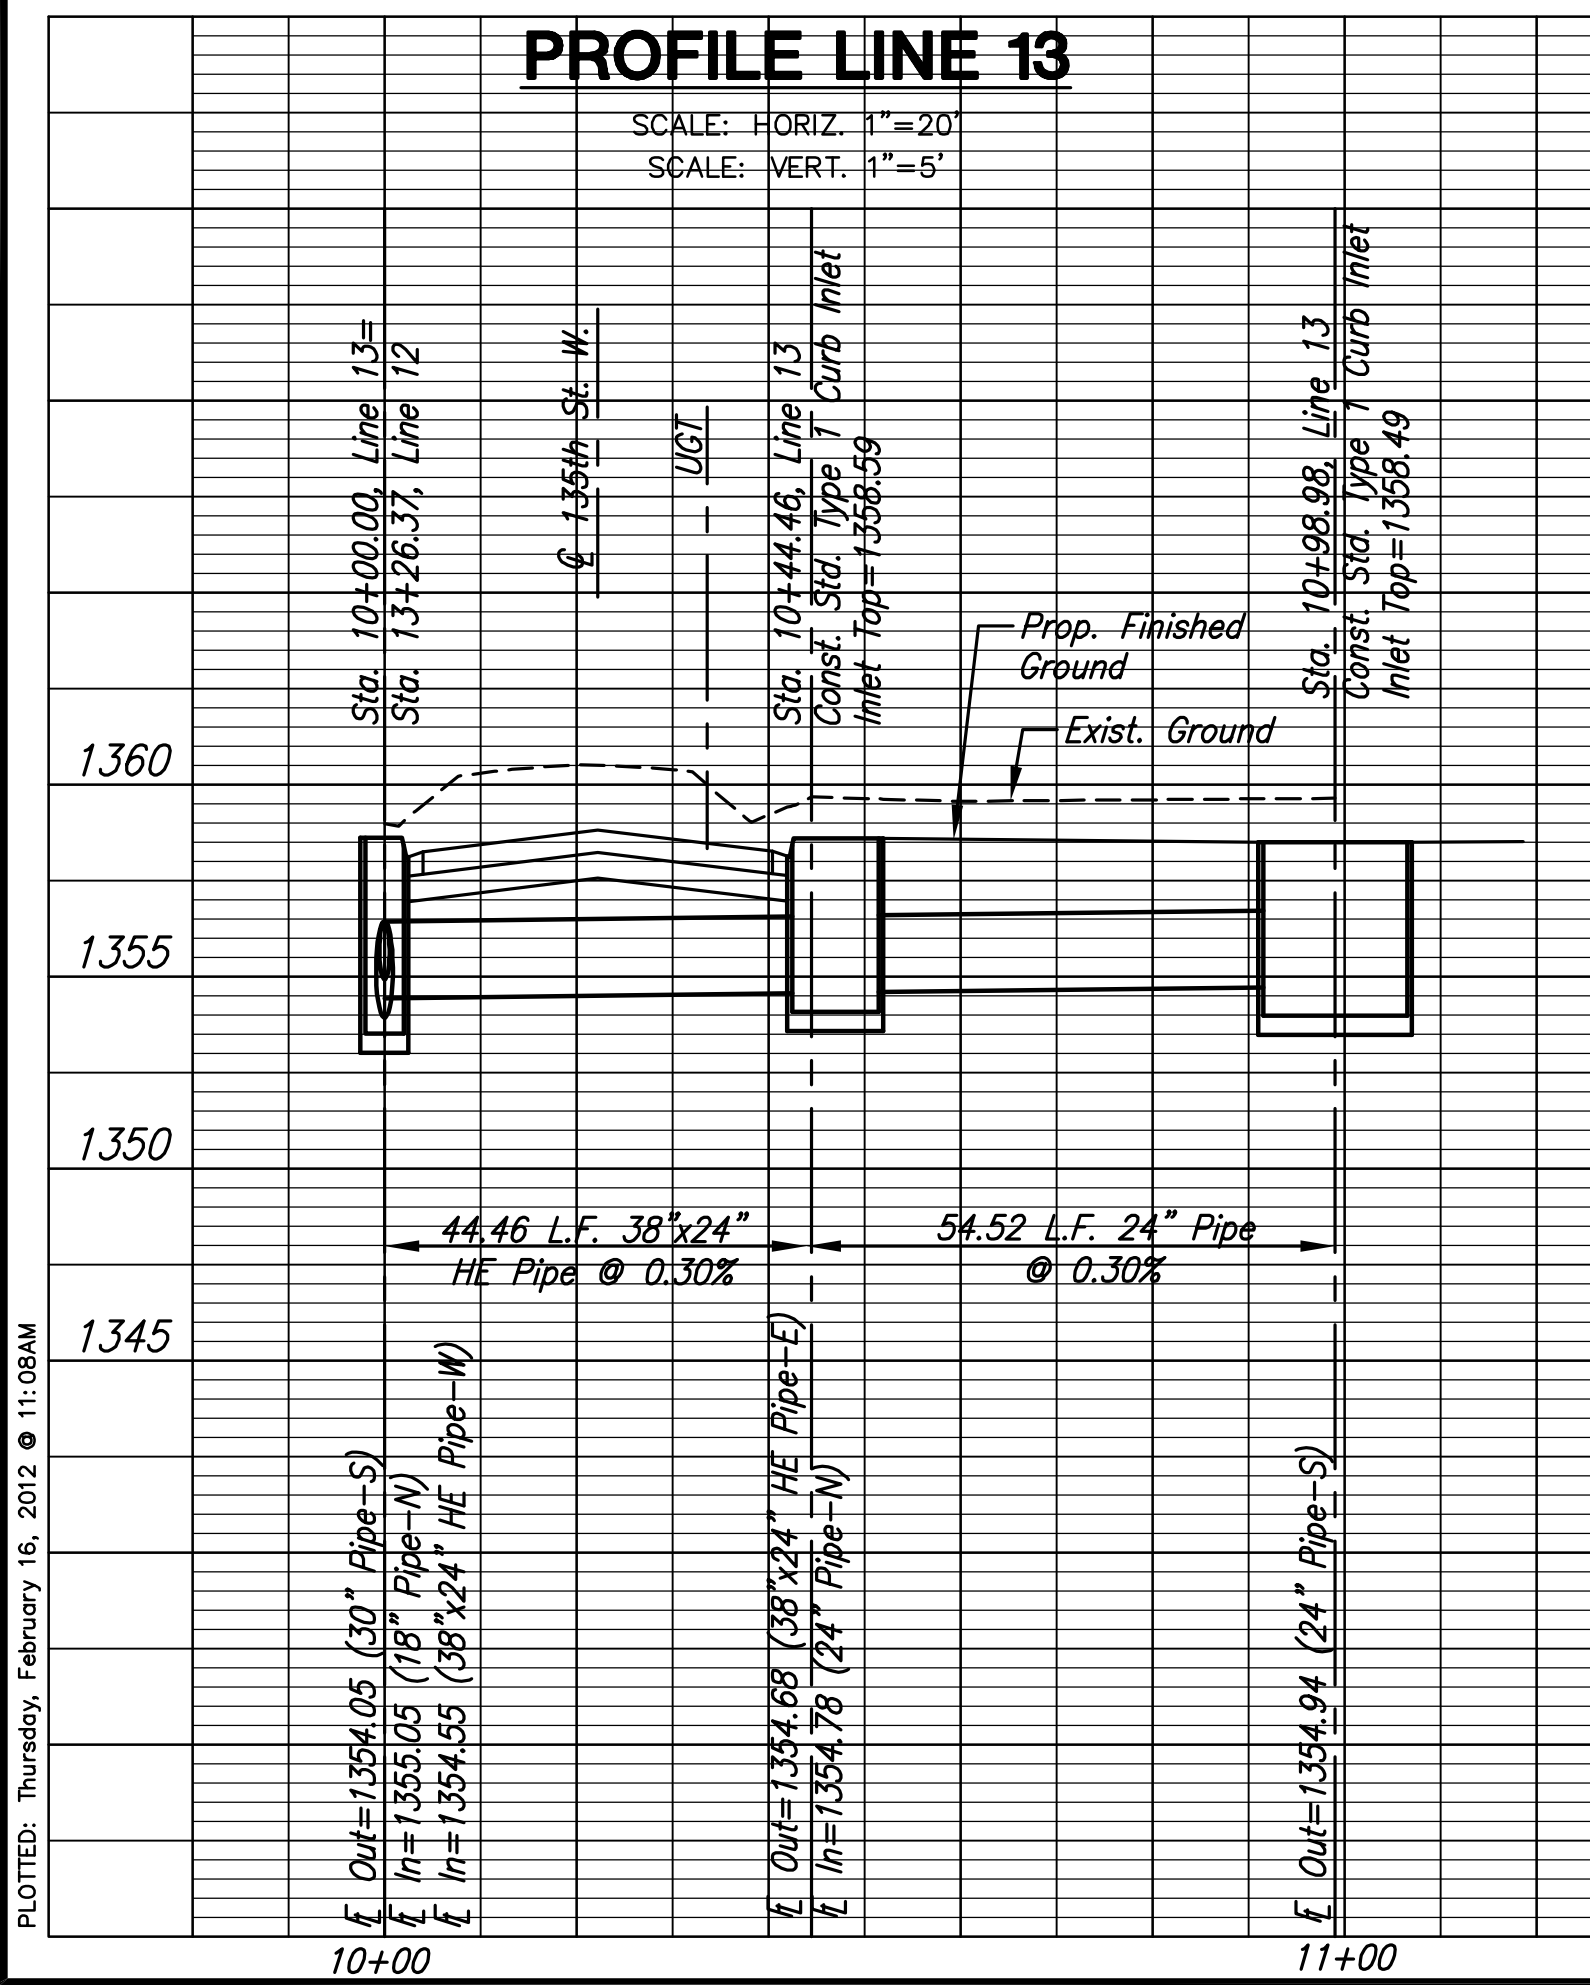 PROFILE LINE 13
SCALE: HORIZ. 1"=20'
SCALE: VERT. 1"=5'
Sta. 10+00.00, Line 13=
Sta. 13+26.37, Line 12
℄ 135th St. W.
UGT
Sta. 10+44.46, Line 13
Const. Std. Type 1 Curb Inlet
Inlet Top=1358.59
Sta. 10+98.98, Line 13
Const. Std. Type 1 Curb Inlet
Inlet Top=1358.49
Prop. Finished
Ground
Exist. Ground
1360
1355
1350
1345
44.46 L.F. 38"x24"
HE Pipe @ 0.30%
54.52 L.F. 24" Pipe
@ 0.30%
FL Out=1354.05 (30" Pipe-S)
FL In=1355.05 (18" Pipe-N)
FL In=1354.55 (38"x24" HE Pipe-W)
FL Out=1354.68 (38"x24" HE Pipe-E)
FL In=1354.78 (24" Pipe-N)
FL Out=1354.94 (24" Pipe-S)
10+00
11+00
PLOTTED: Thursday, February 16, 2012 @ 11:08AM